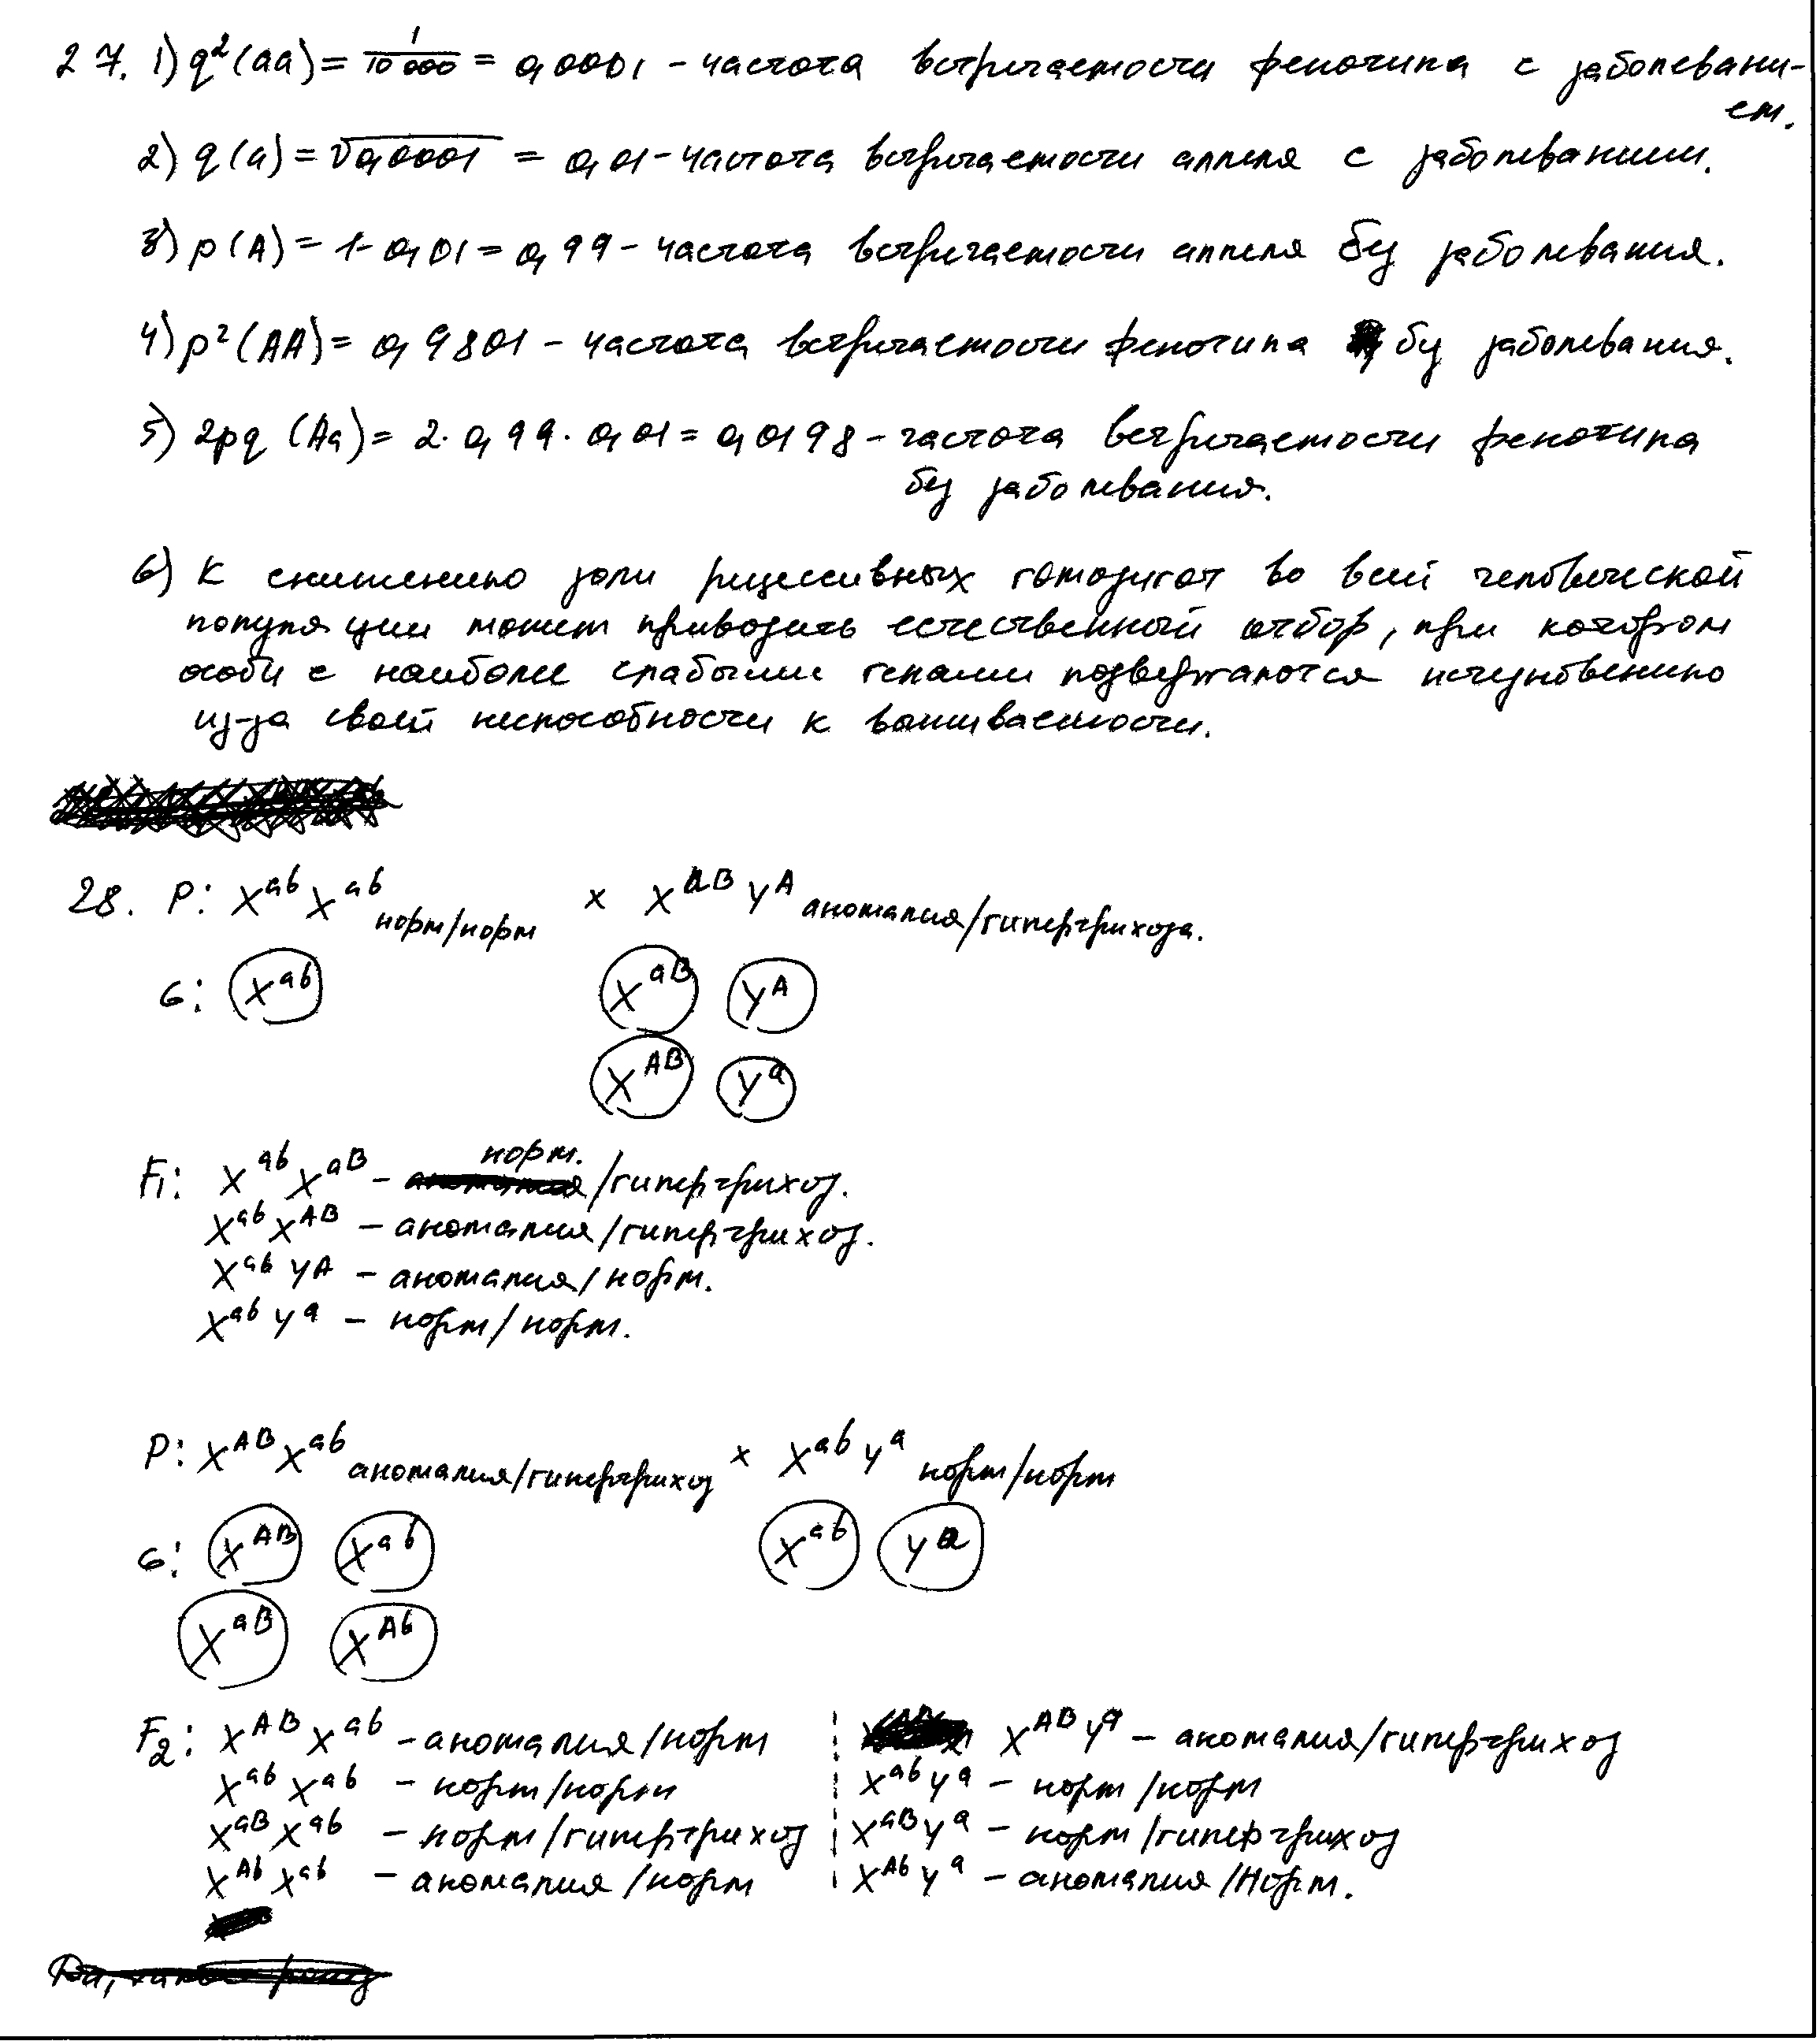 27. 1) q²(aa) = 1/10 000 = 0,0001 - частота встречаемости фенотипа с заболевани-
ем.
2) q(a) = √0,0001 = 0,01 - частота встречаемости аллеля с заболеванием.
3) p(A) = 1 - 0,01 = 0,99 - частота встречаемости аллеля без заболевания.
4) p²(AA) = 0,9801 - частота встречаемости фенотипа без заболевания.
5) 2pq (Aa) = 2 · 0,99 · 0,01 = 0,0198 - частота встречаемости фенотипа
без заболевания.
6) К снижению доли рецессивных гомозигот во всей человеческой
популяции может приводить естественный отбор, при котором
особи с наиболее слабыми генами подвергаются исчезновению
из-за своей неспособности к выживаемости.
28. P: X^ab X^ab норм/норм x X^aB Y^A аномалия/гипертрихоза.
G: X^ab X^aB Y^A
X^AB Y^a
F1: X^ab X^aB - норм./гипертрихоз.
X^ab X^AB - аномалия/гипертрихоз.
X^ab Y^A - аномалия/норм.
X^ab Y^a - норм/норм.
P: X^AB X^ab аномалия/гипертрихоз x X^ab Y^a норм/норм
G: X^AB X^ab X^ab Y^a
X^aB X^Ab
F2: X^AB X^ab - аномалия/норм X^AB Y^a - аномалия/гипертрихоз
X^ab X^ab - норм/норм X^ab Y^a - норм/норм
X^aB X^ab - норм/гипертрихоз X^aB Y^a - норм/гипертрихоз
X^Ab X^ab - аномалия/норм X^Ab Y^a - аномалия/Норм.